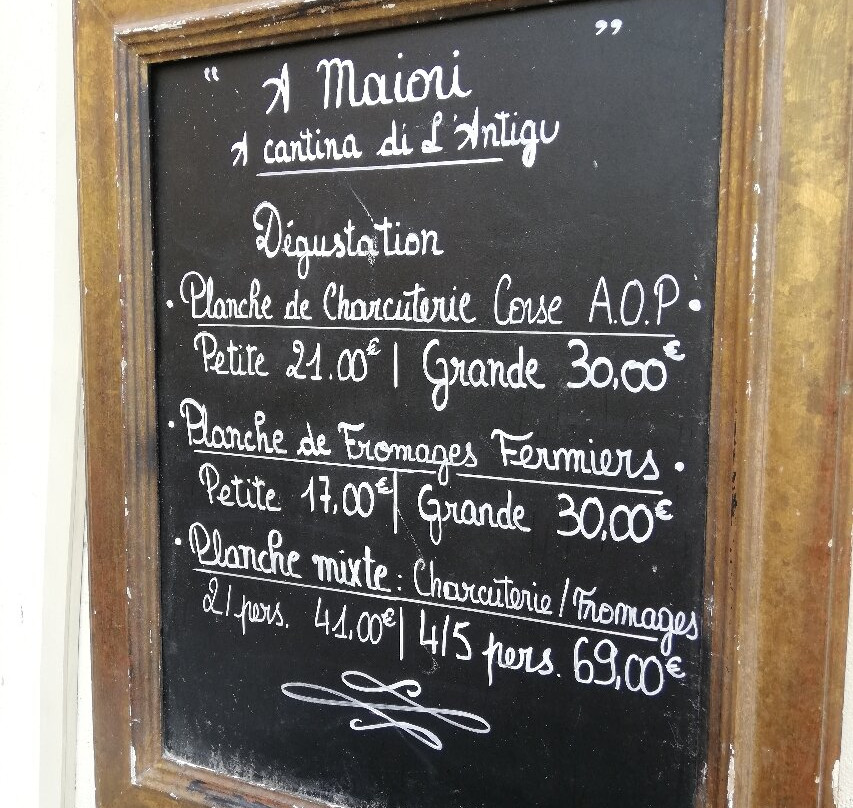 " A Maiori "
A cantina di L'Antigu
Dégustation
• Planche de Charcuterie Corse A.O.P •
Petite 21.00€ | Grande 30,00€
• Planche de Fromages Fermiers •
Petite 17,00€ | Grande 30,00€
• Planche mixte : Charcuterie/Fromages
2/pers. 41,00€ | 4/5 pers. 69,00€